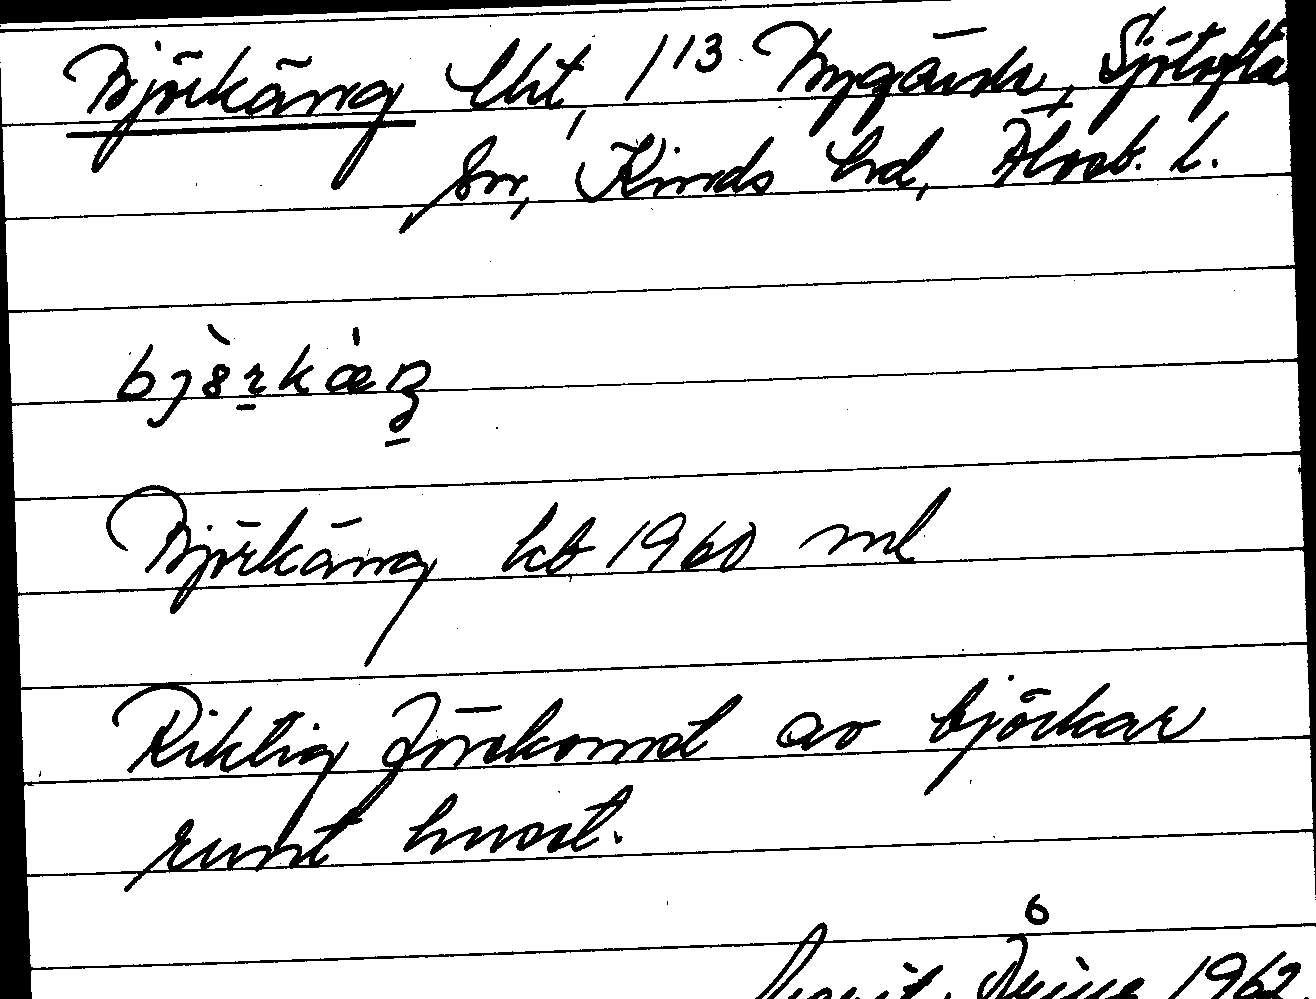 Björkäng lht, 1¹³ Nygärde, Sjötofta
sn, Kinds hd, Älvsb. l.
bjö̀rkæ̀ŋ
Björkäng kb 1960 ml
Riktig förekomst av björkar
runt huset.
6
1962